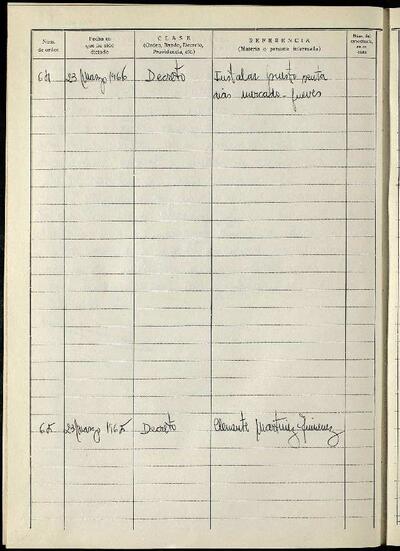 Núm. de orden
Fecha en que ha sido dictado
CLASE
(Orden, Bando, Decreto, Providencia, etc.)
REFERENCIA
(Materia o persona interesada)
Núm. del
64 23 Marzo 1966 Decreto Instalar puesto venta
días mercado - jueves
65 23 Marzo 1965 Decreto Clemente Martinez Jimenez